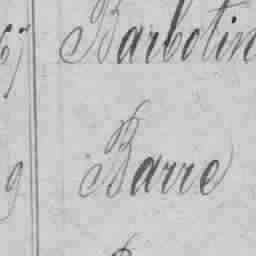 67 Barbotin
9 Barre